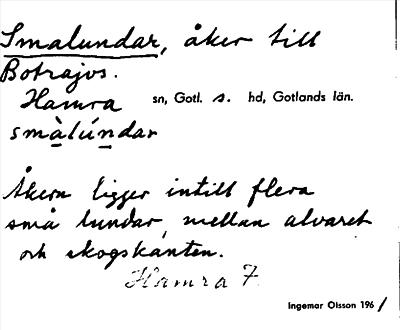 Smalundar, åker till
Botrajvs.
Hamra sn, Gotl. s. hd, Gotlands län.
smàlúndar
Åkern ligger intill flera
små lundar, mellan alvaret
och skogskanten.
Hamra 7.
Ingemar Olsson 1961